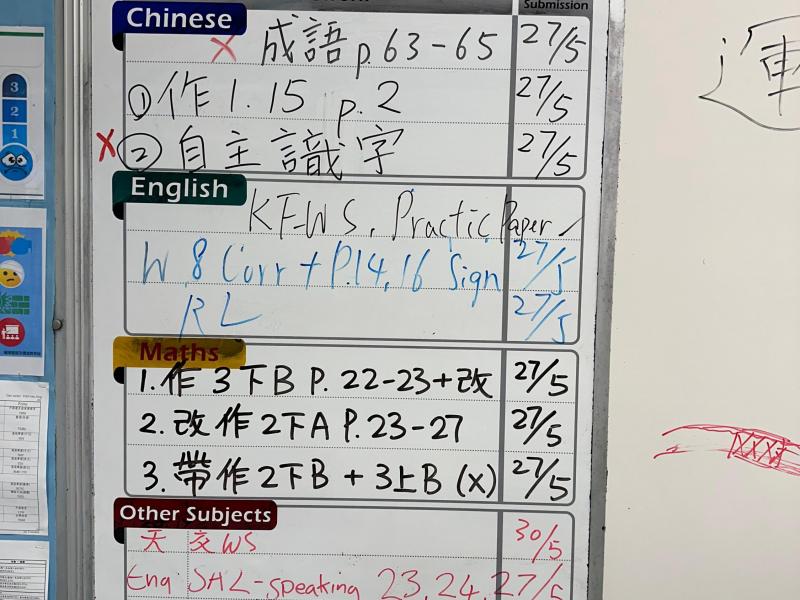 Submission
Chinese
X 成語 p.63-65 27/5
①作1.15 p.2 27/5
X ②自主識字 27/5
English
KF-WS, Practic Paper
W.8 Corr + P.14,16 Sign 27/5
RL 27/5
Maths
1.作3下B P. 22-23+改 27/5
2.改作2下A P.23-27 27/5
3.帶作2下B + 3上B (x) 27/5
Other Subjects
天 交WS 30/5
Eng SHL-speaking 23,24,27/5
3
2
1